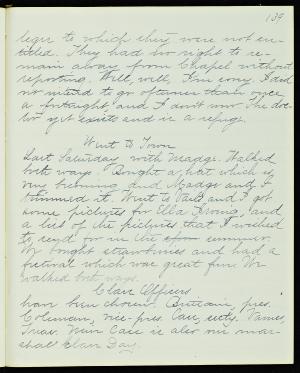 139
lege to which they were not en-
titled. They had no right to re-
main away from Chapel without
reporting. Well, well, I'm sorry I did
not intend to go oftener than once
a fortnight, and I don't now. The doc-
tor yet exists and is a refuge.
Went to Town
Last Saturday with Madge. Walked
both ways. Bought a hat which is
very becoming and Madge and I
trimmed it. Went to Vail's and I got
some pictures for Ella and
a list of the pictures that I wished
to send for in the summer.
We bought strawberries and had a
festival which was great fun. We
walked both ways.
Class Officers
have been chosen. pres.
Coleman, vice-pres. Carr, secty. James,
Treas. Miss Case is also our mar-
shal Class Day.